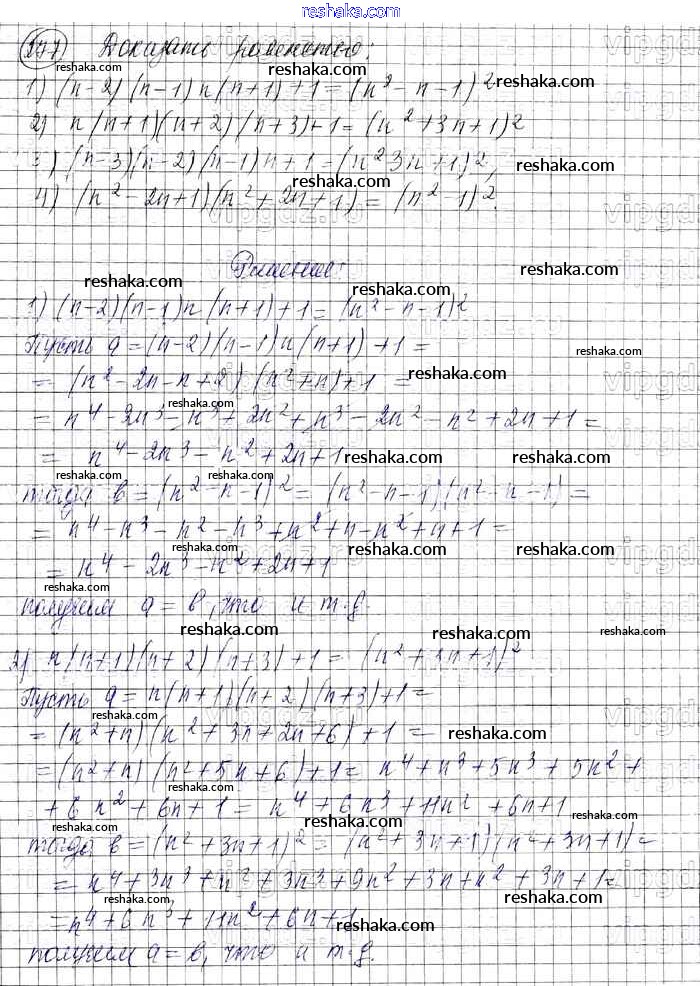 reshaka.com
247) Доказать равенство:
1) (n-2)(n-1)n(n+1)+1=(n²-n-1)²
2) n(n+1)(n+2)(n+3)+1=(n²+3n+1)²
3) (n-3)(n-2)(n-1)n+1=(n²3n+1)²,
4) (n²-2n+1)(n²+2n+1)=(n²-1)².
Решение:
1) (n-2)(n-1)n(n+1)+1=(n²-n-1)²
Пусть a=(n-2)(n-1)n(n+1)+1=
=(n²-2n-n+2)(n²+n)+1=
=n⁴-2n³-n³+2n²+n³-2n²-n²+2n+1=
=n⁴-2n³-n²+2n+1
тогда b=(n²-n-1)²=(n²-n-1)(n²-n-1)=
=n⁴-n³-n²-n³+n²+n-n²+n+1=
=n⁴-2n³-n²+2n+1
получим a=b, что и т.д.
2) n(n+1)(n+2)(n+3)+1=(n²+3n+1)²
Пусть a=n(n+1)(n+2)(n+3)+1=
=(n²+n)(n²+3n+2n+6)+1=
=(n²+n)(n²+5n+6)+1=n⁴+n³+5n³+5n²+
+6n²+6n+1=n⁴+6n³+11n²+6n+1
тогда b=(n²+3n+1)²=(n²+3n+1)(n²+3n+1)=
=n⁴+3n³+n²+3n³+9n²+3n+n²+3n+1=
=n⁴+6n³+11n²+6n+1
получим a=b, что и т.д.